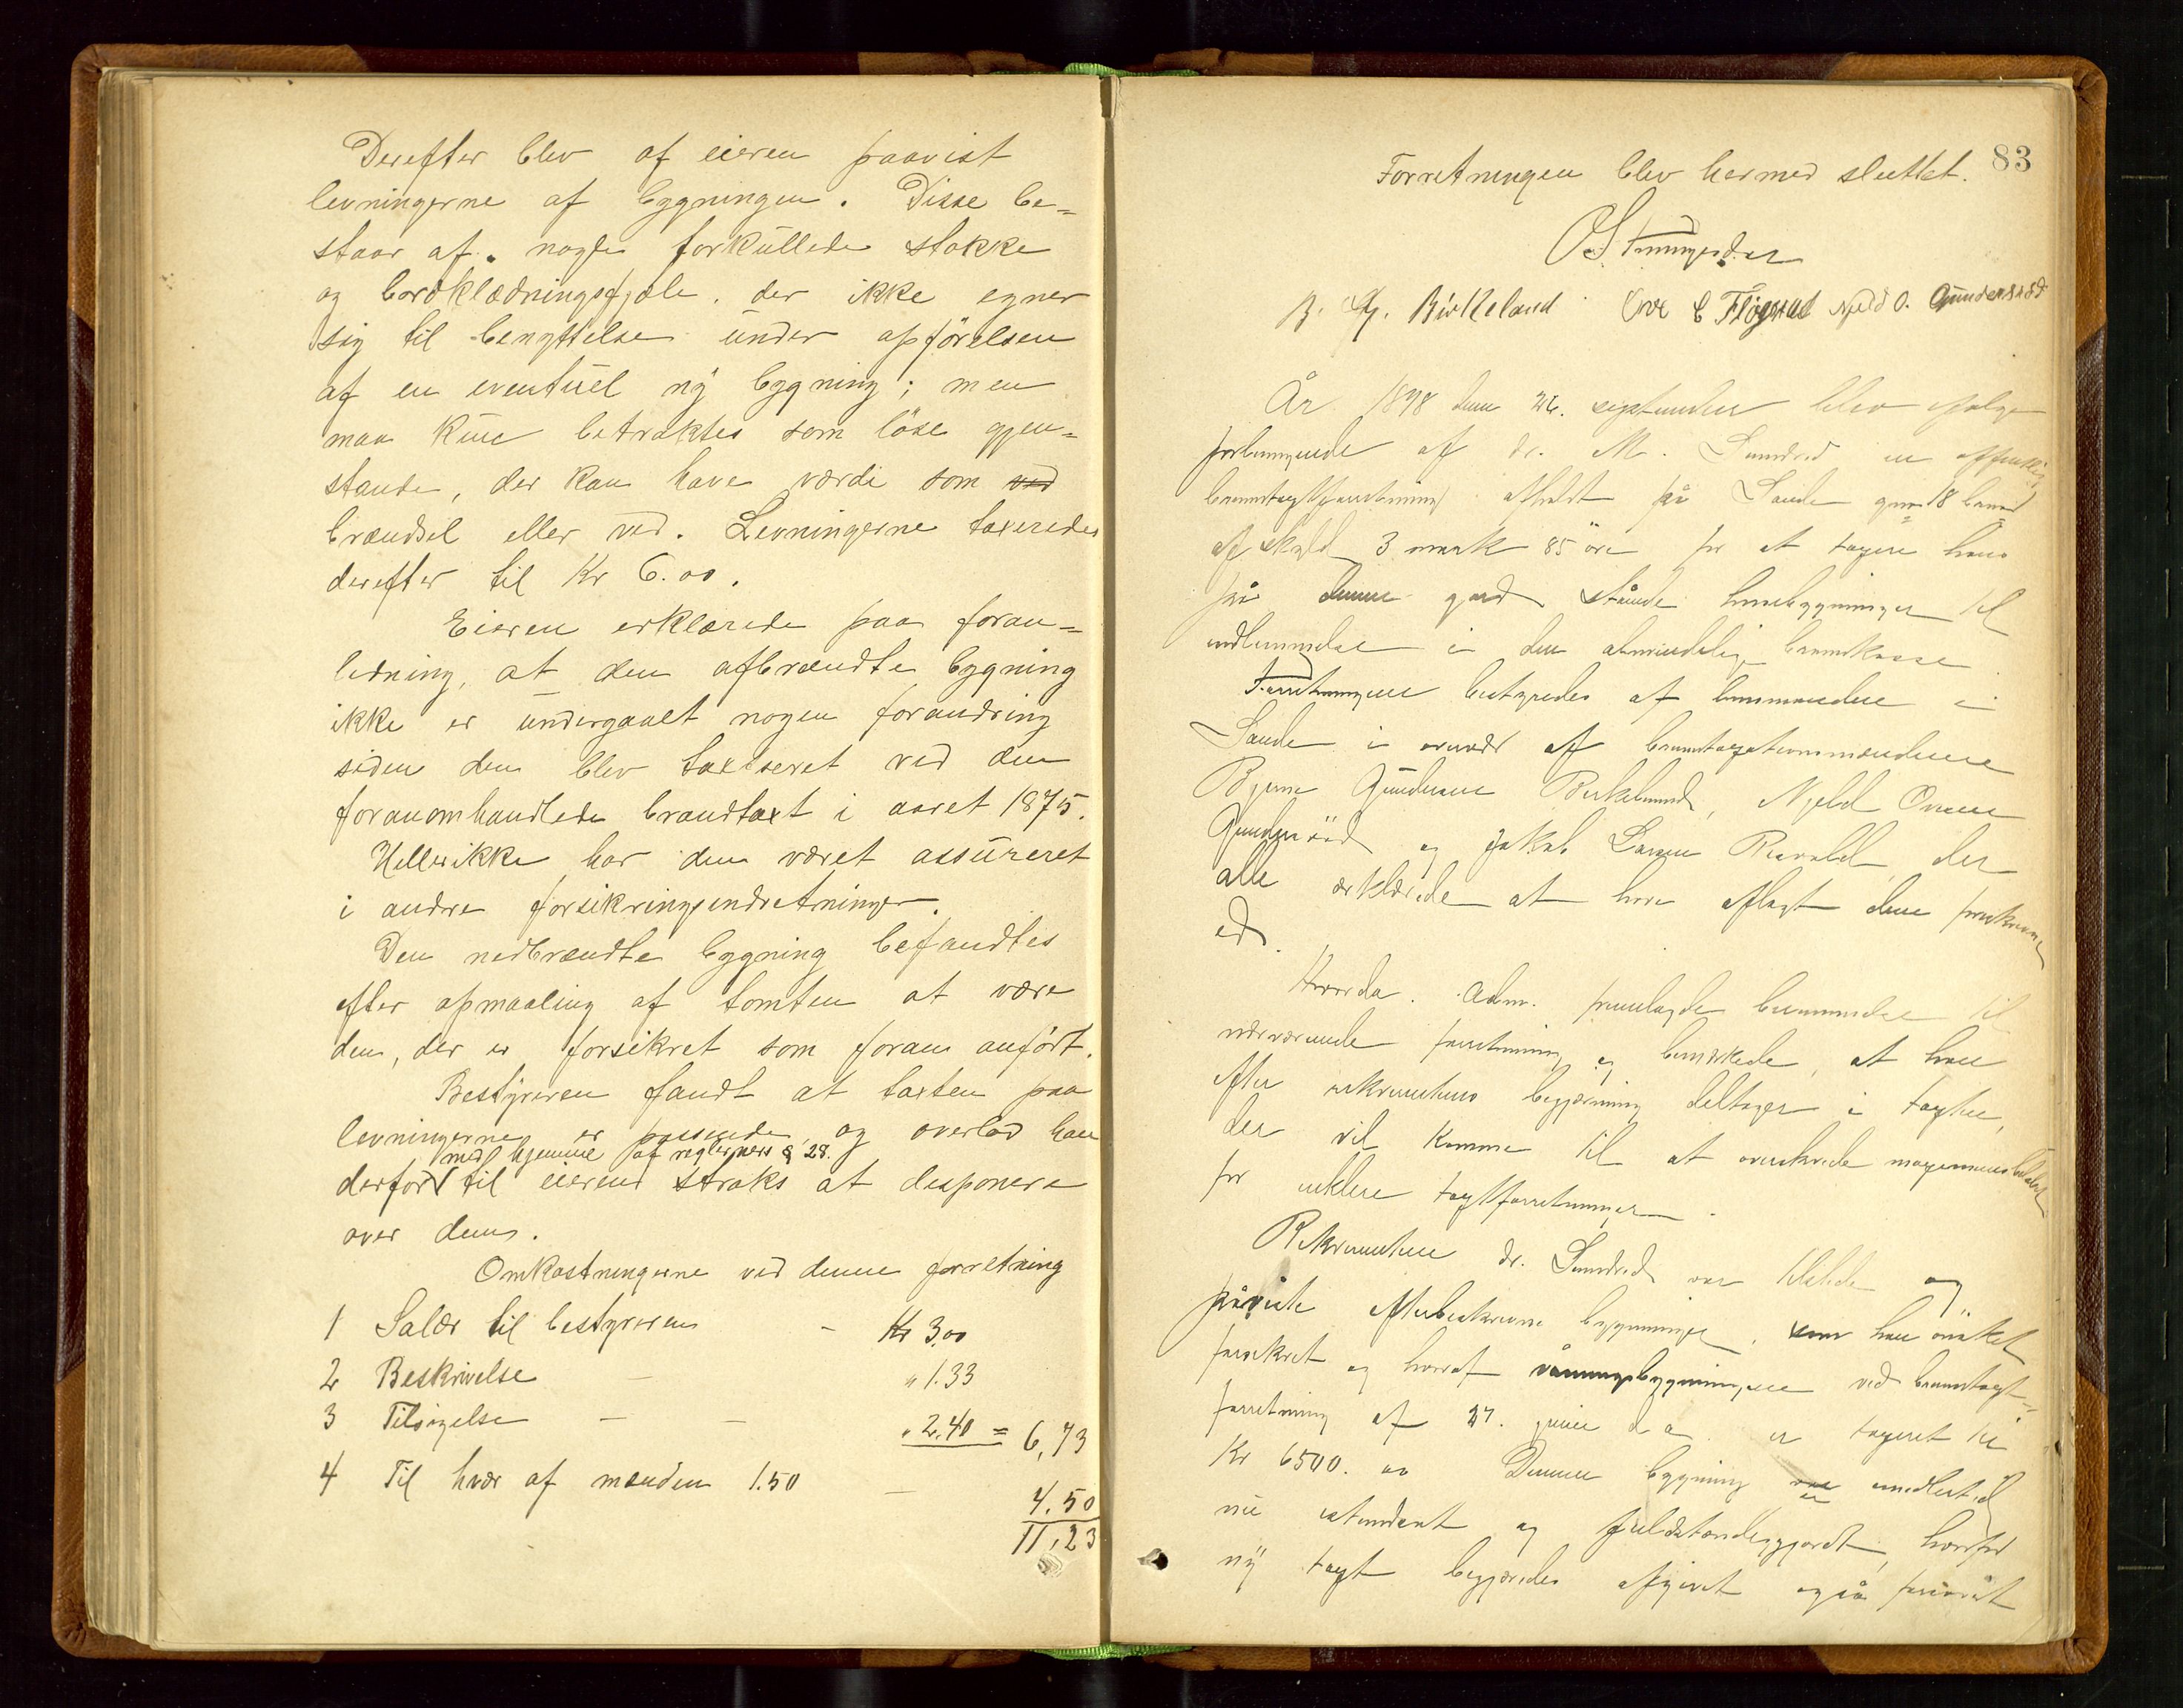 Derefter blev af eieren paavist
levningerne af bygningen. Disse be=
staar af. nogle forkullede stokke
og bordklædningsfjæle, der ikke egner
sig til benyttelse under opförelsen
af en eventuel ny bygning; men
maa kun betraktes som löse gjen=
stande, der kan have værdi som ved
brændsel eller ved. Levningerne taxeredes
derefter til Kr 6.00.
Eieren erklærede paa foran=
ledning, at den afbrændte bygning
ikke er undergaaet nogen forandring
siden den blev taxseret ved den
foranomhandlede brandtaxt i aaret 1875.
Heller ikke har den været assureret
i andre forsikringsindretninger.
Den nedbrændte bygning befandtes
efter opmaaling af tomten at være
den, der er forsikret som foran anfört.
Bestyreren fandt at taxten paa
levningerne er passende, og overlod han
med hjemmel af reglernes § 28.
derfor til eieren straks at desponere
over dem.
Omkostningerne ved denne forretning
1 Salær til bestyreren - Kr 3.00
2 Beskrivelse - " 1.33
3 Tilsigelse - - " 2.40 = 6,73
4 Til hver af mænden 1.50 - 4.50
11,23
83
Forretningen blev hermed sluttet.
B. G. Birkeland Njeld O. Gundersröd
År 1898 den 26. september blev ifølge
forlangende af dr. M. Sundred en offentlig
brandtaxtforretning afholdt på Sande gno 18 bno
af skyld 3 mark 85 öre for at taxere hans
på denne gard stående husebygninger til
indlemmelse i den almindelige brandkasse
Forretningen bestyredes af lensmanden i
Sande i overvær af brandtaxationsmændene
Bjerne Gundersen Birkeland, Njeld Ovesen
Gundersröd og Jakob Larsen Revold, der
alle erklærede at have aflagt den foreskrevne
ed.
Hvorda. Adm. fremlagde berammelse til
nærværende forretning og bemerkede, at han
efter rekvirentens begjæring deltager i taxten,
der vil komme til at overskride maximumsbeløbet
for enklere taxtforretninger.
Rekvirenten dr. Sundred var tilstede og
påviste efterbeskrevne bygninger, som han önsket
forsikret og hvoraf våningsbygningen ved brandtaxt=
forretning af 27. juni d a er taxeret til
Kr 6500.00 Denne bygning er imidlertid
nu udvidet og fuldstændiggjordt, hvorfor
ny taxt begjæredes afgivet også forsåvidt